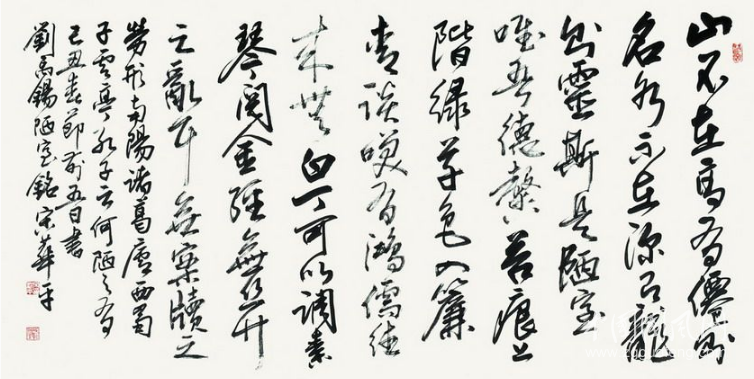 山不在高有僊則
名水不在深有龍
則靈斯是陋室
唯吾德馨苔痕上
階綠草色入簾
青談笑有鴻儒往
來無白丁可以調素
琴閱金經無絲竹
之亂耳無案牘之
勞形南陽諸葛廬西蜀
子雲亭孔子云何陋之有
己丑春節前五日書
劉禹錫陋室銘宋華平